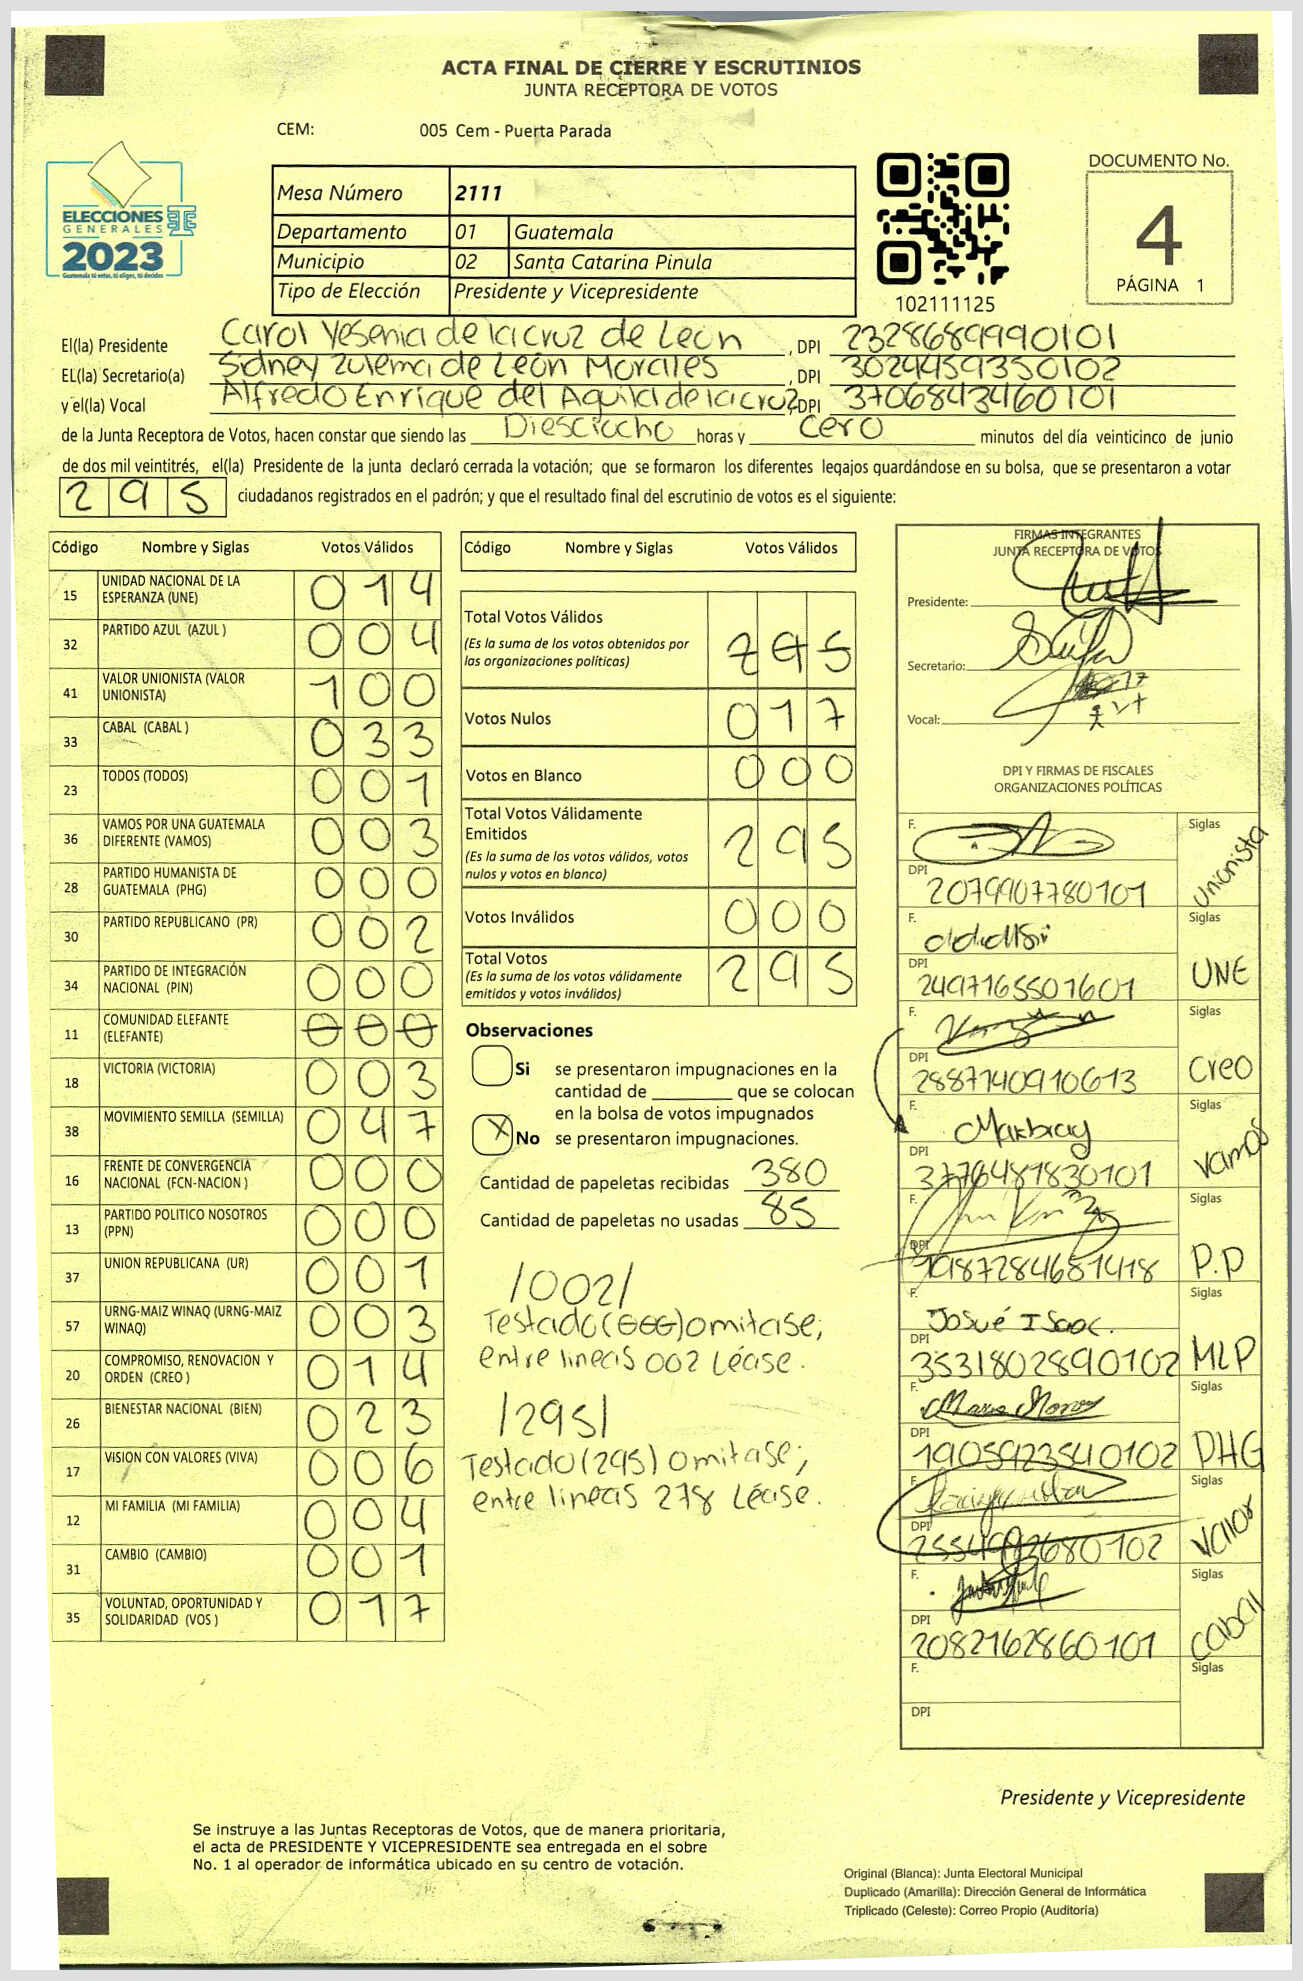 ACTA FINAL DE CIERRE Y ESCRUTINIOS
JUNTA RECEPTORA DE VOTOS
CEM: 005 Cem - Puerta Parada
ELECCIONES
GENERALES
2023
Guatemala tú votas, tú eliges, tú decides
Mesa Número 2111
Departamento 01 Guatemala
Municipio 02 Santa Catarina Pinula
Tipo de Elección Presidente y Vicepresidente
102111125
DOCUMENTO No.
4
PÁGINA 1
El(la) Presidente Carol Yesenia de la cruz de León , DPI 2328689990101
EL(la) Secretario(a) Sidney Zulema de León Morales , DPI 3024459350102
y el(la) Vocal Alfredo Enrique del Aguila de la cruz, DPI 3706843460101
de la Junta Receptora de Votos, hacen constar que siendo las Diesciocho horas y cero minutos del día veinticinco de junio
de dos mil veintitrés, el(la) Presidente de la junta declaró cerrada la votación; que se formaron los diferentes legajos guardándose en su bolsa, que se presentaron a votar
295 ciudadanos registrados en el padrón; y que el resultado final del escrutinio de votos es el siguiente:
Código Nombre y Siglas Votos Válidos
15 UNIDAD NACIONAL DE LA ESPERANZA (UNE) 014
32 PARTIDO AZUL (AZUL ) 004
41 VALOR UNIONISTA (VALOR UNIONISTA) 100
33 CABAL (CABAL ) 033
23 TODOS (TODOS) 001
36 VAMOS POR UNA GUATEMALA DIFERENTE (VAMOS) 003
28 PARTIDO HUMANISTA DE GUATEMALA (PHG) 000
30 PARTIDO REPUBLICANO (PR) 002
34 PARTIDO DE INTEGRACIÓN NACIONAL (PIN) 000
11 COMUNIDAD ELEFANTE (ELEFANTE) 000
18 VICTORIA (VICTORIA) 003
38 MOVIMIENTO SEMILLA (SEMILLA) 047
16 FRENTE DE CONVERGENCIA NACIONAL (FCN-NACION ) 000
13 PARTIDO POLITICO NOSOTROS (PPN) 000
37 UNION REPUBLICANA (UR) 001
57 URNG-MAIZ WINAQ (URNG-MAIZ WINAQ) 003
20 COMPROMISO, RENOVACION Y ORDEN (CREO ) 014
26 BIENESTAR NACIONAL (BIEN) 023
17 VISION CON VALORES (VIVA) 006
12 MI FAMILIA (MI FAMILIA) 004
31 CAMBIO (CAMBIO) 001
35 VOLUNTAD, OPORTUNIDAD Y SOLIDARIDAD (VOS ) 017
Código Nombre y Siglas Votos Válidos
Total Votos Válidos
(Es la suma de los votos obtenidos por
las organizaciones políticas) 295
Votos Nulos 017
Votos en Blanco 000
Total Votos Válidamente
Emitidos
(Es la suma de los votos válidos, votos
nulos y votos en blanco) 295
Votos Inválidos 000
Total Votos
(Es la suma de los votos válidamente
emitidos y votos inválidos) 295
Observaciones
Si se presentaron impugnaciones en la
cantidad de ________ que se colocan
en la bolsa de votos impugnados
X No se presentaron impugnaciones.
Cantidad de papeletas recibidas 380
Cantidad de papeletas no usadas 85
/002/
Testado (000) omitase;
entre lineas 002 Léase.
/295/
Testado (295) omitase;
entre lineas 278 Léase.
FIRMAS INTEGRANTES
JUNTA RECEPTORA DE VOTOS
Presidente:
Secretario:
Vocal:
DPI Y FIRMAS DE FISCALES
ORGANIZACIONES POLÍTICAS
F. Siglas
DPI 2079907780101 Unionista
F. Siglas
DPI 2497165501601 UNE
F. Siglas
DPI 2887740910613 Creo
F. Siglas
DPI 3776481830101 Vamos
F. Siglas
DPI 1987284681418 P.P
F. Josué Isaac. Siglas
DPI 3531802890102 MLP
F. Siglas
DPI 1905923540102 PHG
F. Siglas
DPI 2554982680102 Valor
F. Siglas
DPI 2082162860101 Cabal
F. Siglas
DPI
Presidente y Vicepresidente
Se instruye a las Juntas Receptoras de Votos, que de manera prioritaria,
el acta de PRESIDENTE Y VICEPRESIDENTE sea entregada en el sobre
No. 1 al operador de informática ubicado en su centro de votación.
Original (Blanca): Junta Electoral Municipal
Duplicado (Amarilla): Dirección General de Informática
Triplicado (Celeste): Correo Propio (Auditoría)